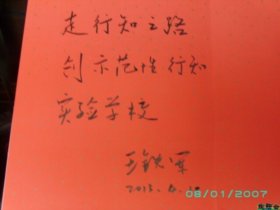 走行知之路
创示范性行知
实验学校
王铁军
2013.6.18
08/01/2007